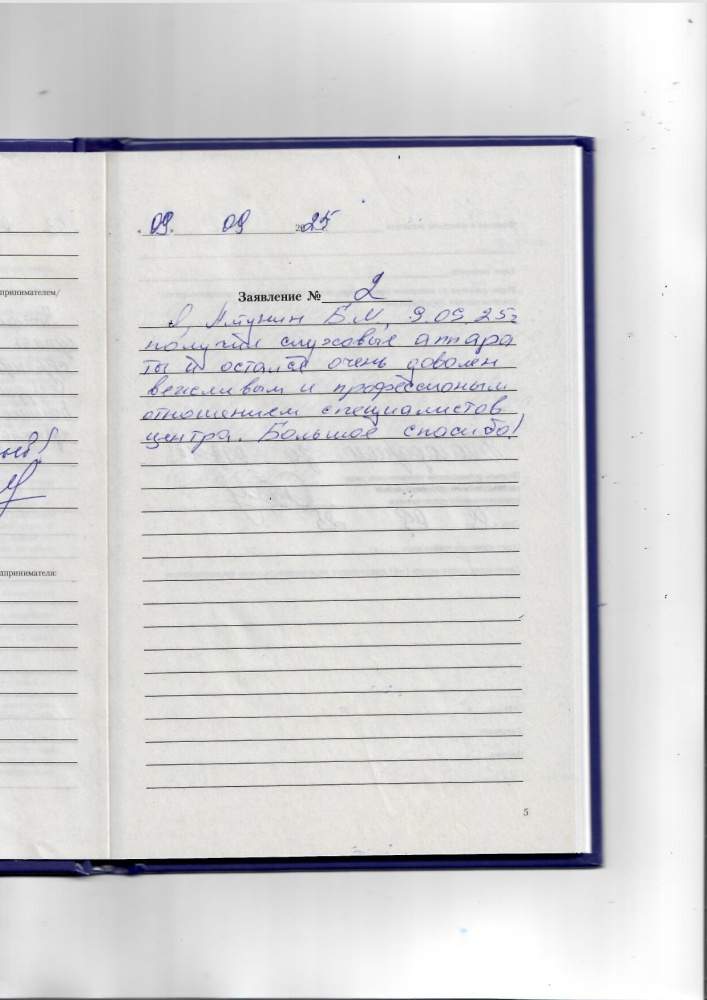 принимателем/
дпринимателя:
09. 09 2025
Заявление № 2
Я, Б.М, 9.09.25г
получил слуховые аппара
ты и остался очень доволен
вежливым и профессионым
отношением специалистов
центра. Большое спасибо!
5